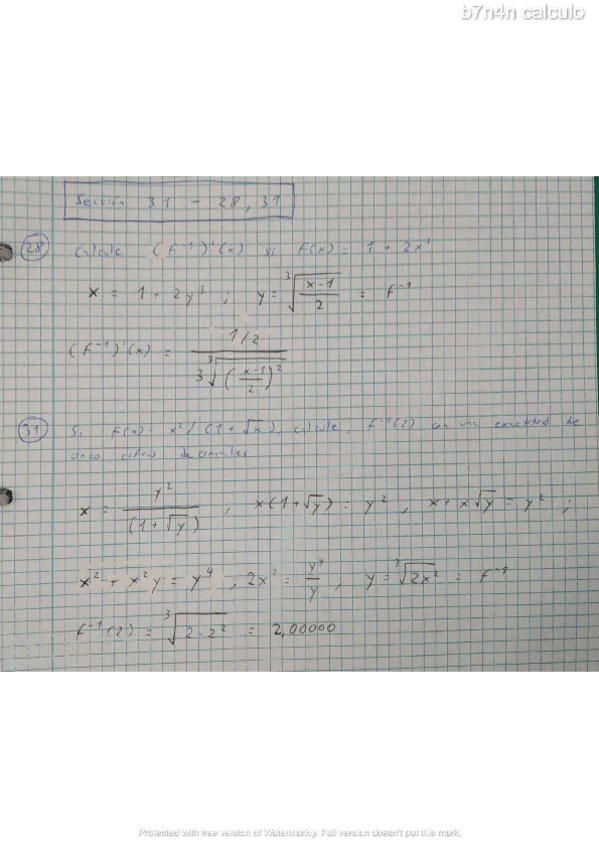 b7n4n calculo
Sección 31 - 28, 31
28 Calcule (f⁻¹)'(x) si f(x) = 1 + 2x³
x = 1 + 2y³ ; y = ∛((x-1)/2) = f⁻¹
(f⁻¹)'(x) = (1/2)/(3∛(((x-1)/2)²))
31 Si f(x) = x²/(1+√x), calcule, f⁻¹(2) con una exactitud de
cinco cifras decimales
x = y²/(1+√y) , x(1+√y) = y² , x + x√y = y² ;
x² + x²y = y⁴ , 2x² = y⁴/y , y = ∛(2x²) = f⁻¹
f⁻¹(2) = ∛(2·2²) = 2,00000
Protected with free version of Watermarkly. Full version doesn't put this mark.